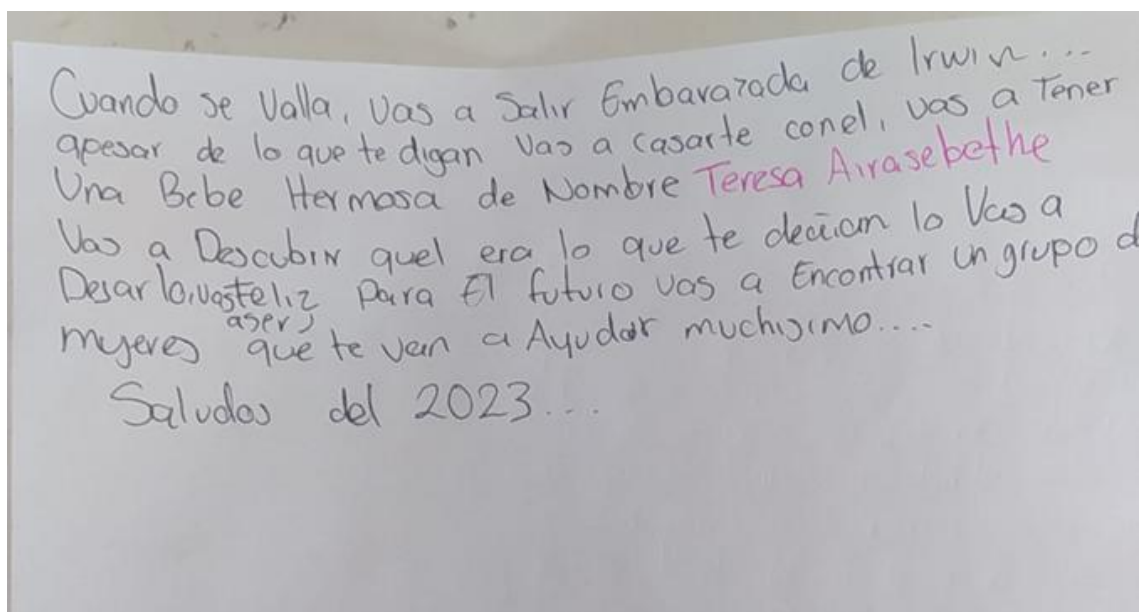 Cuando se Valla, Vas a Salir Embarazada de Irwin...
apesar de lo que te digan Vas a casarte conel, vas a Tener
Una Bebe Hermosa de Nombre Teresa Airasebethe
Vas a Descubrir quel era lo que te decian lo Vas a
Dejar lo, vas a ser feliz Para El futuro vas a Encontrar un grupo d
mujeres que te van a Ayudar muchisimo....
Saludos del 2023....